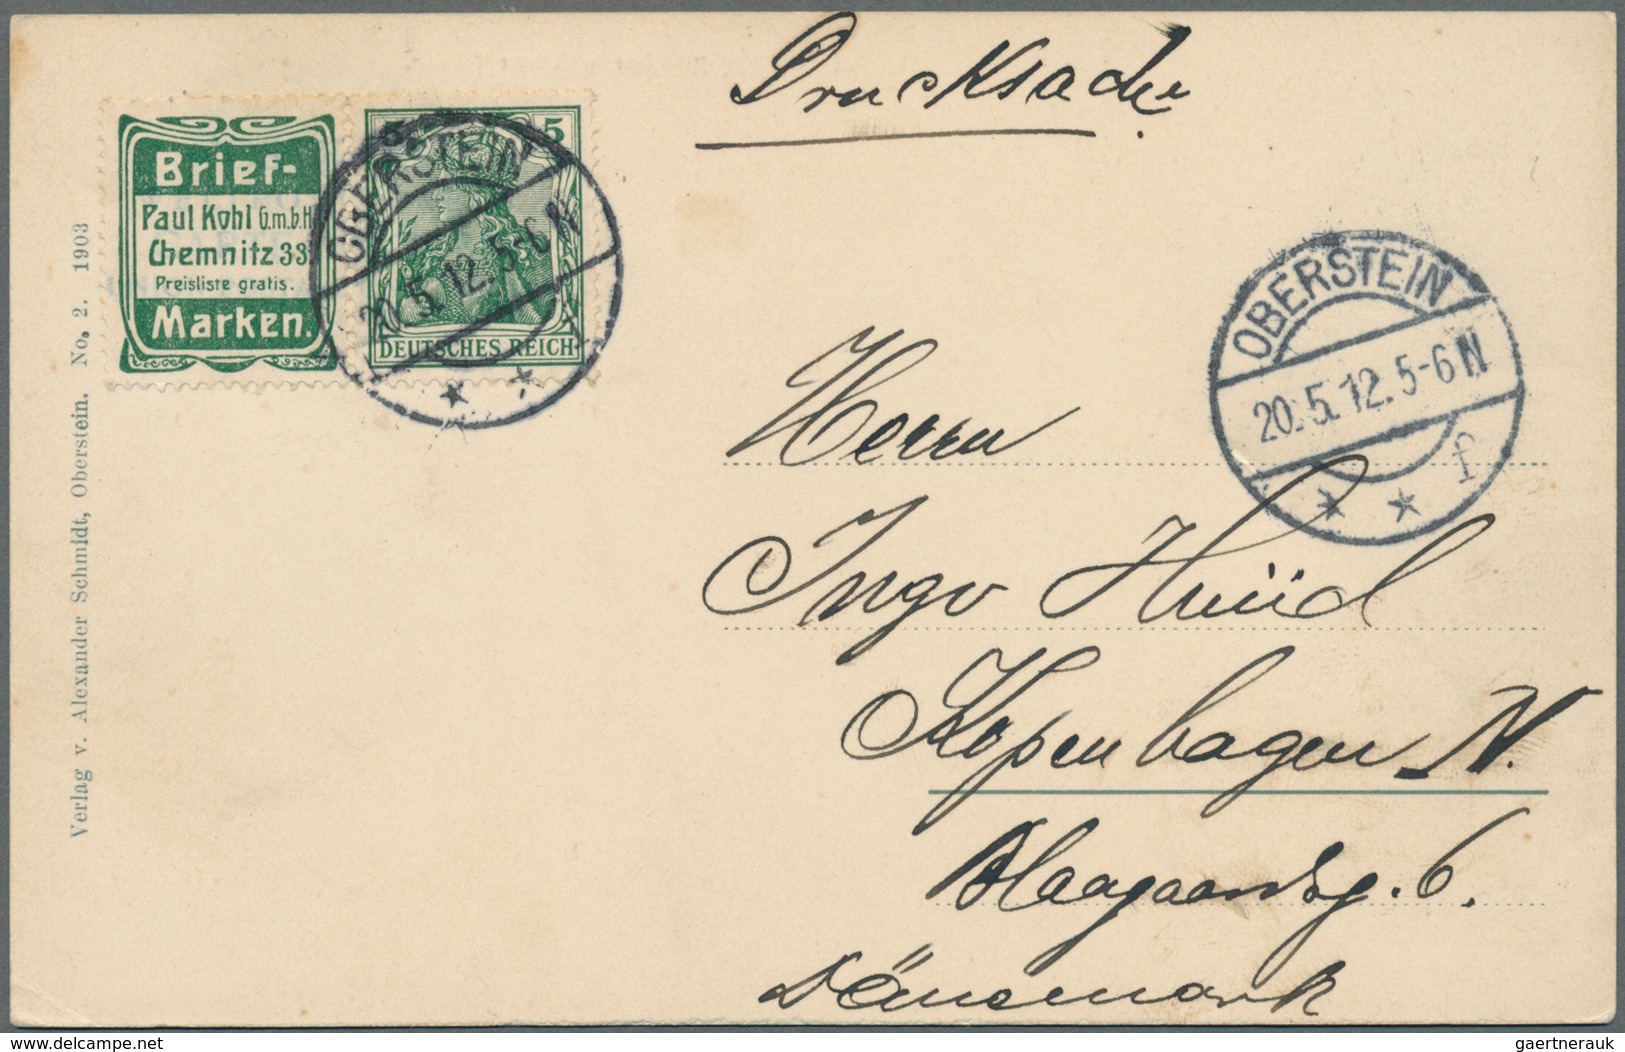 Drucksache
Brief-
Paul Kohl G.m.b.H.
Chemnitz 33
Preisliste gratis.
Marken.
5
DEUTSCHES REICH
OBERSTEIN
20.5.12.5-6N
* *
OBERSTEIN
20.5.12.5-6N
* * f
Verlag v. Alexander Schmidt, Oberstein. No. 2. 1903
Herrn
Ingo
Kopenhagen N.
Blaagaardsg. 6.
Dänemark
delcampe.net
gaertnerauk